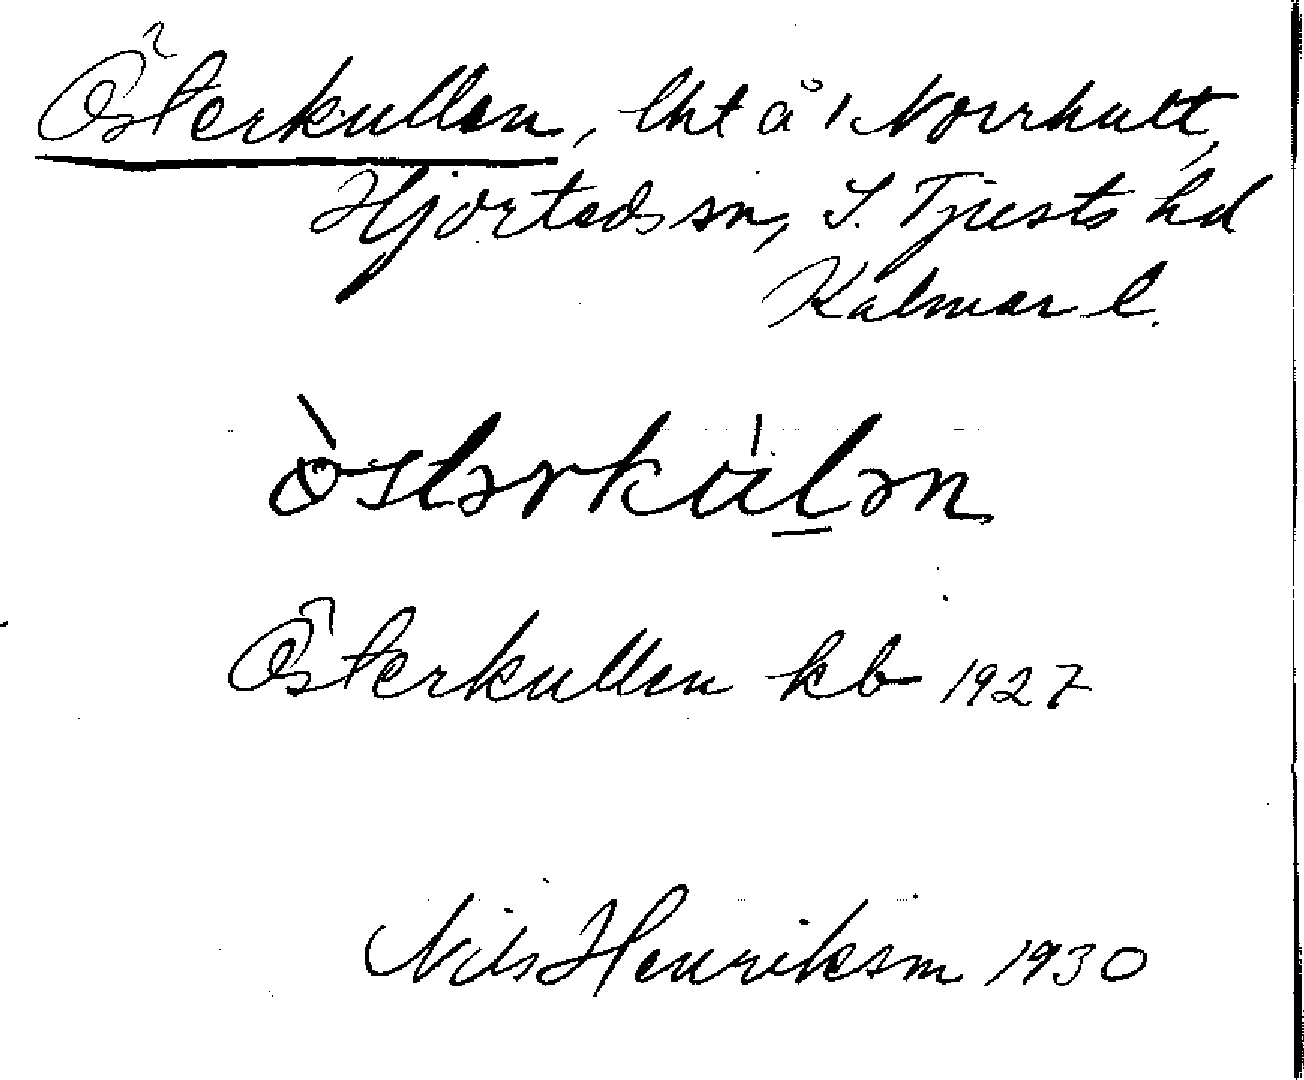 Österkullen, lht å 1 Norrhult,
Hjorteds sn, S. Tjusts hd
Kalmar l.
Österkullen kb 1927
Nils Henriksson 1930